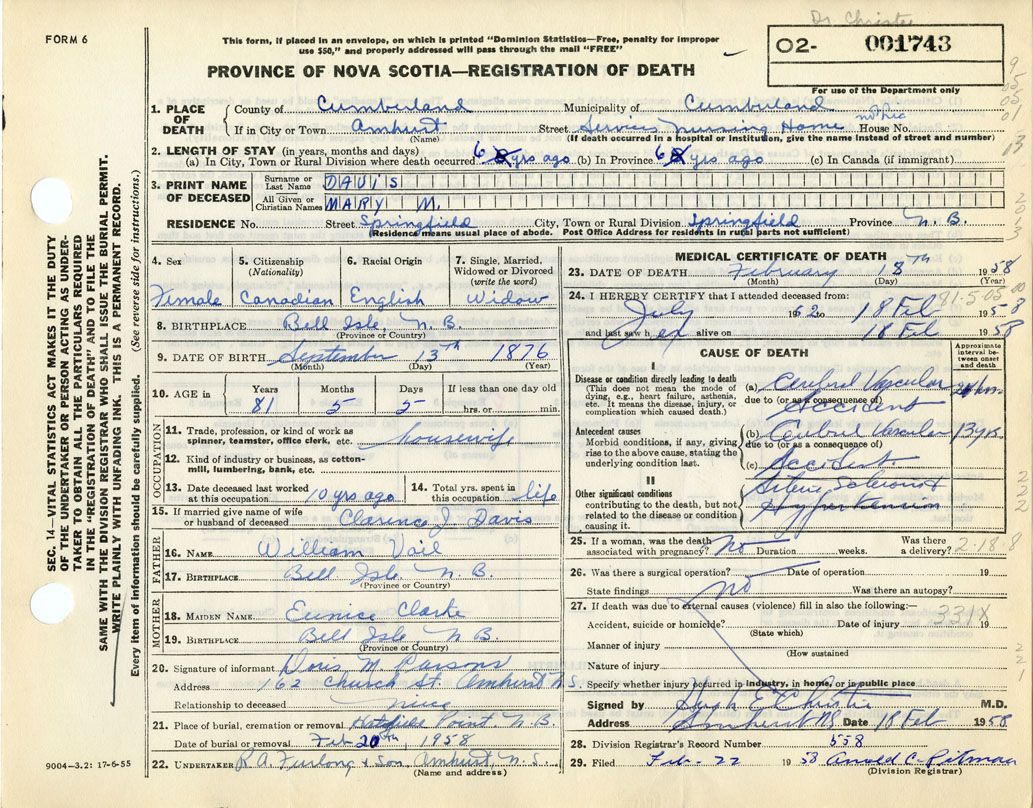 Dr. Christie
FORM 6
This form, if placed in an envelope, on which is printed "Dominion Statistics—Free, penalty for improper
use $50," and properly addressed will pass through the mail "FREE"
02- 001743
For use of the Department only
PROVINCE OF NOVA SCOTIA—REGISTRATION OF DEATH
SEC. 14—VITAL STATISTICS ACT MAKES IT THE DUTY
OF THE UNDERTAKER OR PERSON ACTING AS UNDER-
TAKER TO OBTAIN ALL THE PARTICULARS REQUIRED
IN THE "REGISTRATION OF DEATH" AND TO FILE THE
SAME WITH THE DIVISION REGISTRAR WHO SHALL ISSUE THE BURIAL PERMIT.
WRITE PLAINLY WITH UNFADING INK. THIS IS A PERMANENT RECORD.
Every item of information should be carefully supplied. (See reverse side for instructions.)
1. PLACE OF DEATH
County of Cumberland Municipality of Cumberland
If in City or Town Amherst Street Nursing Home House No.
(Name) (If death occurred in a hospital or institution, give the name instead of street and number)
2. LENGTH OF STAY (in years, months and days)
(a) In City, Town or Rural Division where death occurred 6 yrs ago (b) In Province 6 yrs ago (c) In Canada (if immigrant)
3. PRINT NAME OF DECEASED
Surname or Last Name DAVIS
All Given or Christian Names MARY M.
RESIDENCE No. Street Springfield City, Town or Rural Division Springfield Province N. B.
(Residence means usual place of abode. Post Office Address for residents in rural parts not sufficient)
4. Sex 5. Citizenship (Nationality) 6. Racial Origin 7. Single, Married, Widowed or Divorced (write the word)
Female Canadian English Widow
8. BIRTHPLACE Bell Isle, N. B.
(Province or Country)
9. DATE OF BIRTH September 13th 1876
(Month) (Day) (Year)
10. AGE in Years Months Days If less than one day old
81 5 5 hrs. or min.
OCCUPATION
11. Trade, profession, or kind of work as
spinner, teamster, office clerk, etc. housewife
12. Kind of industry or business, as cotton-
mill, lumbering, bank, etc.
13. Date deceased last worked at this occupation 10 yrs ago 14. Total yrs. spent in this occupation life
15. If married give name of wife
or husband of deceased Clarence J. Davis
FATHER
16. NAME William Vail
17. BIRTHPLACE Bell Isle, N. B.
(Province or Country)
MOTHER
18. MAIDEN NAME Eunice Clarke
19. BIRTHPLACE Bell Isle, N B.
(Province or Country)
20. Signature of informant Doris M Parsons
Address 162 Church St. Amherst N S.
Relationship to deceased niece
21. Place of burial, cremation or removal Hatfield Point N.B.
Date of burial or removal Feb 20th, 1958
22. UNDERTAKER R A. Furlong & Son, Amherst, N. S.
(Name and address)
9004—3.2: 17-6-55
MEDICAL CERTIFICATE OF DEATH
23. DATE OF DEATH February 18th 1958
(Month) (Day) (Year)
24. I HEREBY CERTIFY that I attended deceased from:
81-5-05-00
July 1952 to 18 Feb 1958
and last saw her alive on 18 Feb 1958
CAUSE OF DEATH
Approximate interval between onset and death
I
Disease or condition directly leading to death
(This does not mean the mode of
dying, e.g., heart failure, asthenia,
etc. It means the disease, injury, or
complication which caused death.)
(a) Cerebral Vascular
due to (or as consequence of)
Accident
Antecedent causes
Morbid conditions, if any, giving
rise to the above cause, stating the
underlying condition last.
(b) Cerebral Vascular 13 yrs
due to (or as a consequence of)
(c) Accident
II
Other significant conditions
contributing to the death, but not
related to the disease or condition
causing it.
Hypertension
25. If a woman, was the death
associated with pregnancy? No Duration weeks. Was there a delivery? 2-18-8
26. Was there a surgical operation? Date of operation 19
State findings No Was there an autopsy?
27. If death was due to external causes (violence) fill in also the following:—
331X
Accident, suicide or homicide? Date of injury 19
(State which)
Manner of injury
(How sustained
Nature of injury
Specify whether injury occurred in industry, in home, or in public place
Signed by Hugh E Christie M.D.
Address Amherst NS Date 18 Feb 1958
28. Division Registrar's Record Number 558
29. Filed Feb-22 1958 Arnold C. Pitman
(Division Registrar)